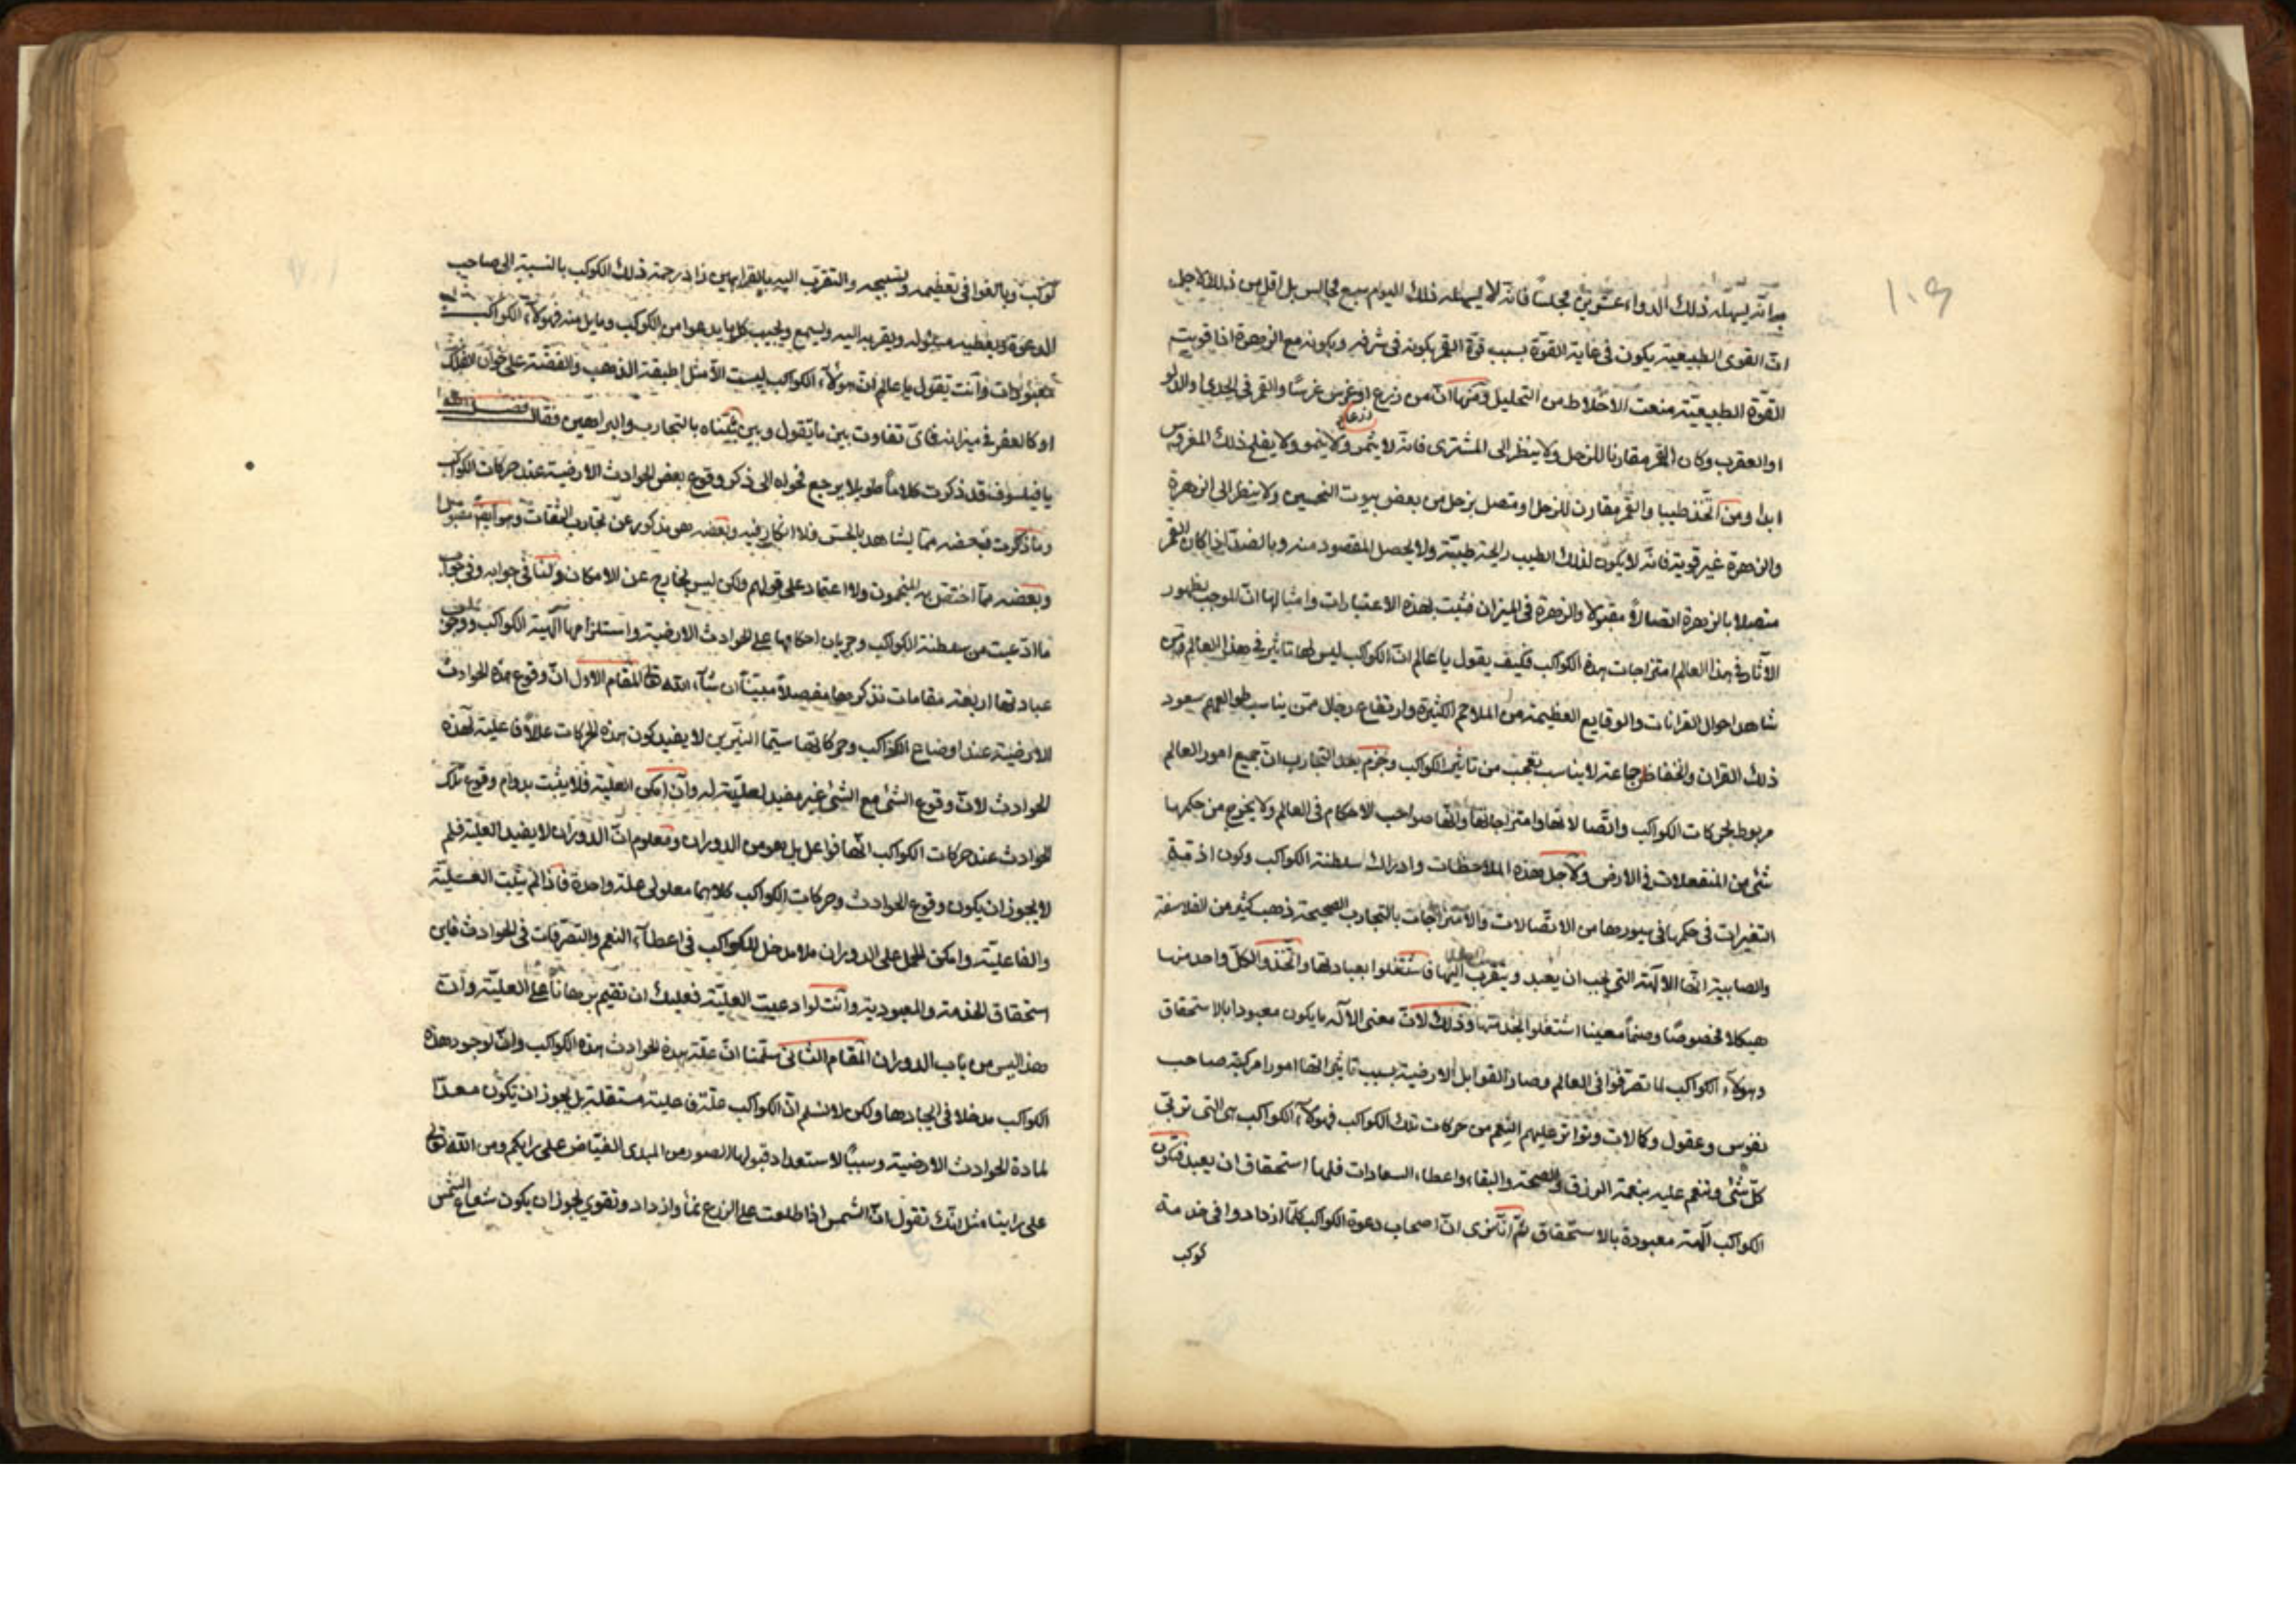 ١٠٩
انه يسهله ذلك الدواء عشرين مجلسًا فانّه لا يسهله ذلك اليوم سبع مجالس بل اقل من ذلك لاجل
انّ القوى الطبيعيّة يكون في غاية القوّة بسبب قوّة القمر بكونه في شرفه وبكونه مع الزهرة اذا قويت
القوّة الطبيعيّة منعت الاخلاط من التحليل ومنها انّ من زرع زرعا او غرس غرسًا والقمر في الجدي او الدلو
او العقرب وكان القمر مقارنا للزحل ولا ينظر الى المشتري فانه لا يثمر ولا ينمو ولا يفلح ذلك المغروس
ابدا ومن اتّخذ طيبا والقمر مقارن للزحل او متصل بزحل من بعض بيوت النحسين ولا ينظر الى الزهرة
والزهرة غير قوية فانّه لا يكون لذلك الطيب رايحة طيّبة ولا يحصل المقصود منه وبالضدّ اذا كان القمر
متصلا بالزهرة اتصالاً مقبولا والزهرة في الميزان فثبت بهذه الاعتبارات وامثالها انّ الموجب لظهور
الآثار في هذا العالم امتزاجات هذه الكواكب فكيف يقول يا عالم انّ الكواكب ليس لها تاثير في هذا العالم ومن
شاهد احوال القرانات والوقايع العظيمة من الملاحم الكثيرة وارتفاع رجال ممّن يناسب طوالعهم سعود
ذلك القران وانخفاض جماعة لا يناسب تعجّب من تاثير الكواكب وجزم بعد التجارب انّ جميع امور العالم
مربوط بحركات الكواكب واتّصالاتها وامتزاجاتها وانّها صواحب الاحكام في العالم ولا يخرج من حكمها
شئ من المنفعلات في الارض ولاجل هذه الملاحظات وادراك سلطنة الكواكب وكون
التغيرات في حكمها في سيورها من الاتّصالات والامتزاجات بالتجارب الصحيحة ذهب كثير من الفلاسفة
والصابية انّها الآلهة التي يجب ان يعبد ويتقرب اليها فاشتغلوا بعبادتها واتّخذوا لكلّ واحد منها
هيكلا مخصوصًا وصنماً معينا اشتغلوا بخدمتها وذلك لانّ معنى الآله ما يكون معبودا بالاستحقاق
وهولاء الكواكب لما تصرّفوا في العالم وصار القوابل الارضية بسبب تاثيراتها امورا مركبة صاحب
نفوس وعقول وكمالات وتواتر عليهم النعم من حركات تلك الكواكب فهولآء الكواكب هي التي تربّي
كلّ شئ وتنعم عليه بنعمة الرزق والصحة والبقاء واعطاء السعادات فلها استحقاق ان يعبد فتكون
الكواكب آلهة معبودة بالاستحقاق ثمّ انّا نرى انّ اصحاب دعوة الكواكب كلّما ازدادوا في خدمة
كوكب
كوكب وبالغوا في تعظيمه وتسبيحه والتقرّب اليه بالقرابين زاد رحمة ذلك الكوكب بالنسبة الى صاحب
الدعوة ويعطيه مسئوله ويقربه اليه ويسمع ويجيب كل ما يدعوا من الكوكب وما يل منه فهولآء الكواكب
معبودات وانت تقول يا عالم انّ هولاء الكواكب ليست الاّ مثل اطبقة الذهب والفضّة على خوان الفلك
او كالعفر في ميزانه فايّ تفاوت بين ما يقول وبين ما بيّناه بالتجارب والبراهين فقال
يا فيلسوف قد ذكرت كلاماً طويلا يرجع فحواه الى ذكر وقوع بعض الحوادث الارضية عند حركات الكواكب
وما ذكرت فبعضه ممّا يشاهد بالحسّ فلا انكار فيه وبعضه هو مذكور عن تجارب الثقات وهو ايضًا مقبول
وبعضه ممّا اختصّ به المنجمون ولا اعتماد على قولهم ولكن ليس بخارج عن الامكان ولنا في جوابه وفي جواب
ما ادّعيت من سلطنة الكواكب وجريان احكامها على الحوادث الارضية واستلزامها آلهية الكواكب ووجوب
عبادتها اربعة مقامات نذكرها مفصلاً مبيّناً ان شآء الله تعالى المقام الاول انّ وقوع هذه الحوادث
الارضية عند اوضاع الكواكب وحركاتها سيّما النيّرين لا يفيد كون هذه الحركات عللاً فاعلية لهذه
الحوادث لانّ وقوع الشئ مع الشئ غير مفيد لعليّته له وان امكن العلية فلا يثبت بدوام وقوع تلك
الحوادث عند حركات الكواكب انّها فواعل بل هو من الدوران ومعلوم انّ الدوران لا يفيد العلية فلم
لا يجوز ان يكون وقوع الحوادث وحركات الكواكب كلاهما معلولي علة واحدة فاذا لم يثبت العليّة
والفاعلية وامكن الحمل على الدوران فلا مدخل للكواكب في اعطآء النعم والتصرّفات في الحوادث فاين
استحقاق الخدمة والمعبودية وانت لو ادعيت العليّة فعليك ان تقيم برهاناً على العليّة وان
هذا ليس من باب الدوران المقام الثاني سلّمنا انّ علّة هذه الحوادث هذه الكواكب وانّ لوجود هذه
الكواكب مدخلا في ايجادها ولكن لا نسلم انّ الكواكب علّة فاعلية مستقلة بل يجوز ان يكون معدّا
لمادة الحوادث الارضية وسببًا لاستعداد قبولها الصور من المبدئ الفيّاض على رايكم ومن الله تعالى
على راينا مثل انّك تقول انّ الشمس اذا طلعت على الزرع نما وازداد وتقوي يجوز ان يكون شعاع الشمس